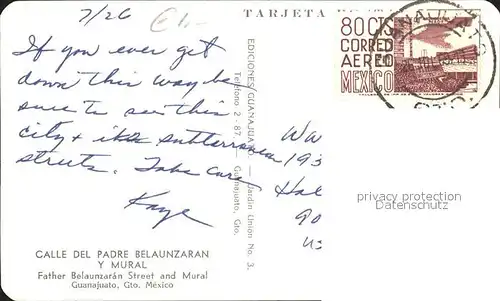 7/26
£1,-
TARJETA
If you ever get
down this way be
sure to see this
city & its subterranean
streets. Take care
Kaye
CALLE DEL PADRE BELAUNZARAN
Y MURAL
Father Belaunzarán Street and Mural
Guanajuato, Gto. México
EDICIONES GUANAJUATO. — Jardín Unión No. 3.
Teléfono 2-87. — Guanajuato, Gto.
80 CTS
CORREO
AEREO
MEXICO
193
privacy protection
Datenschutz